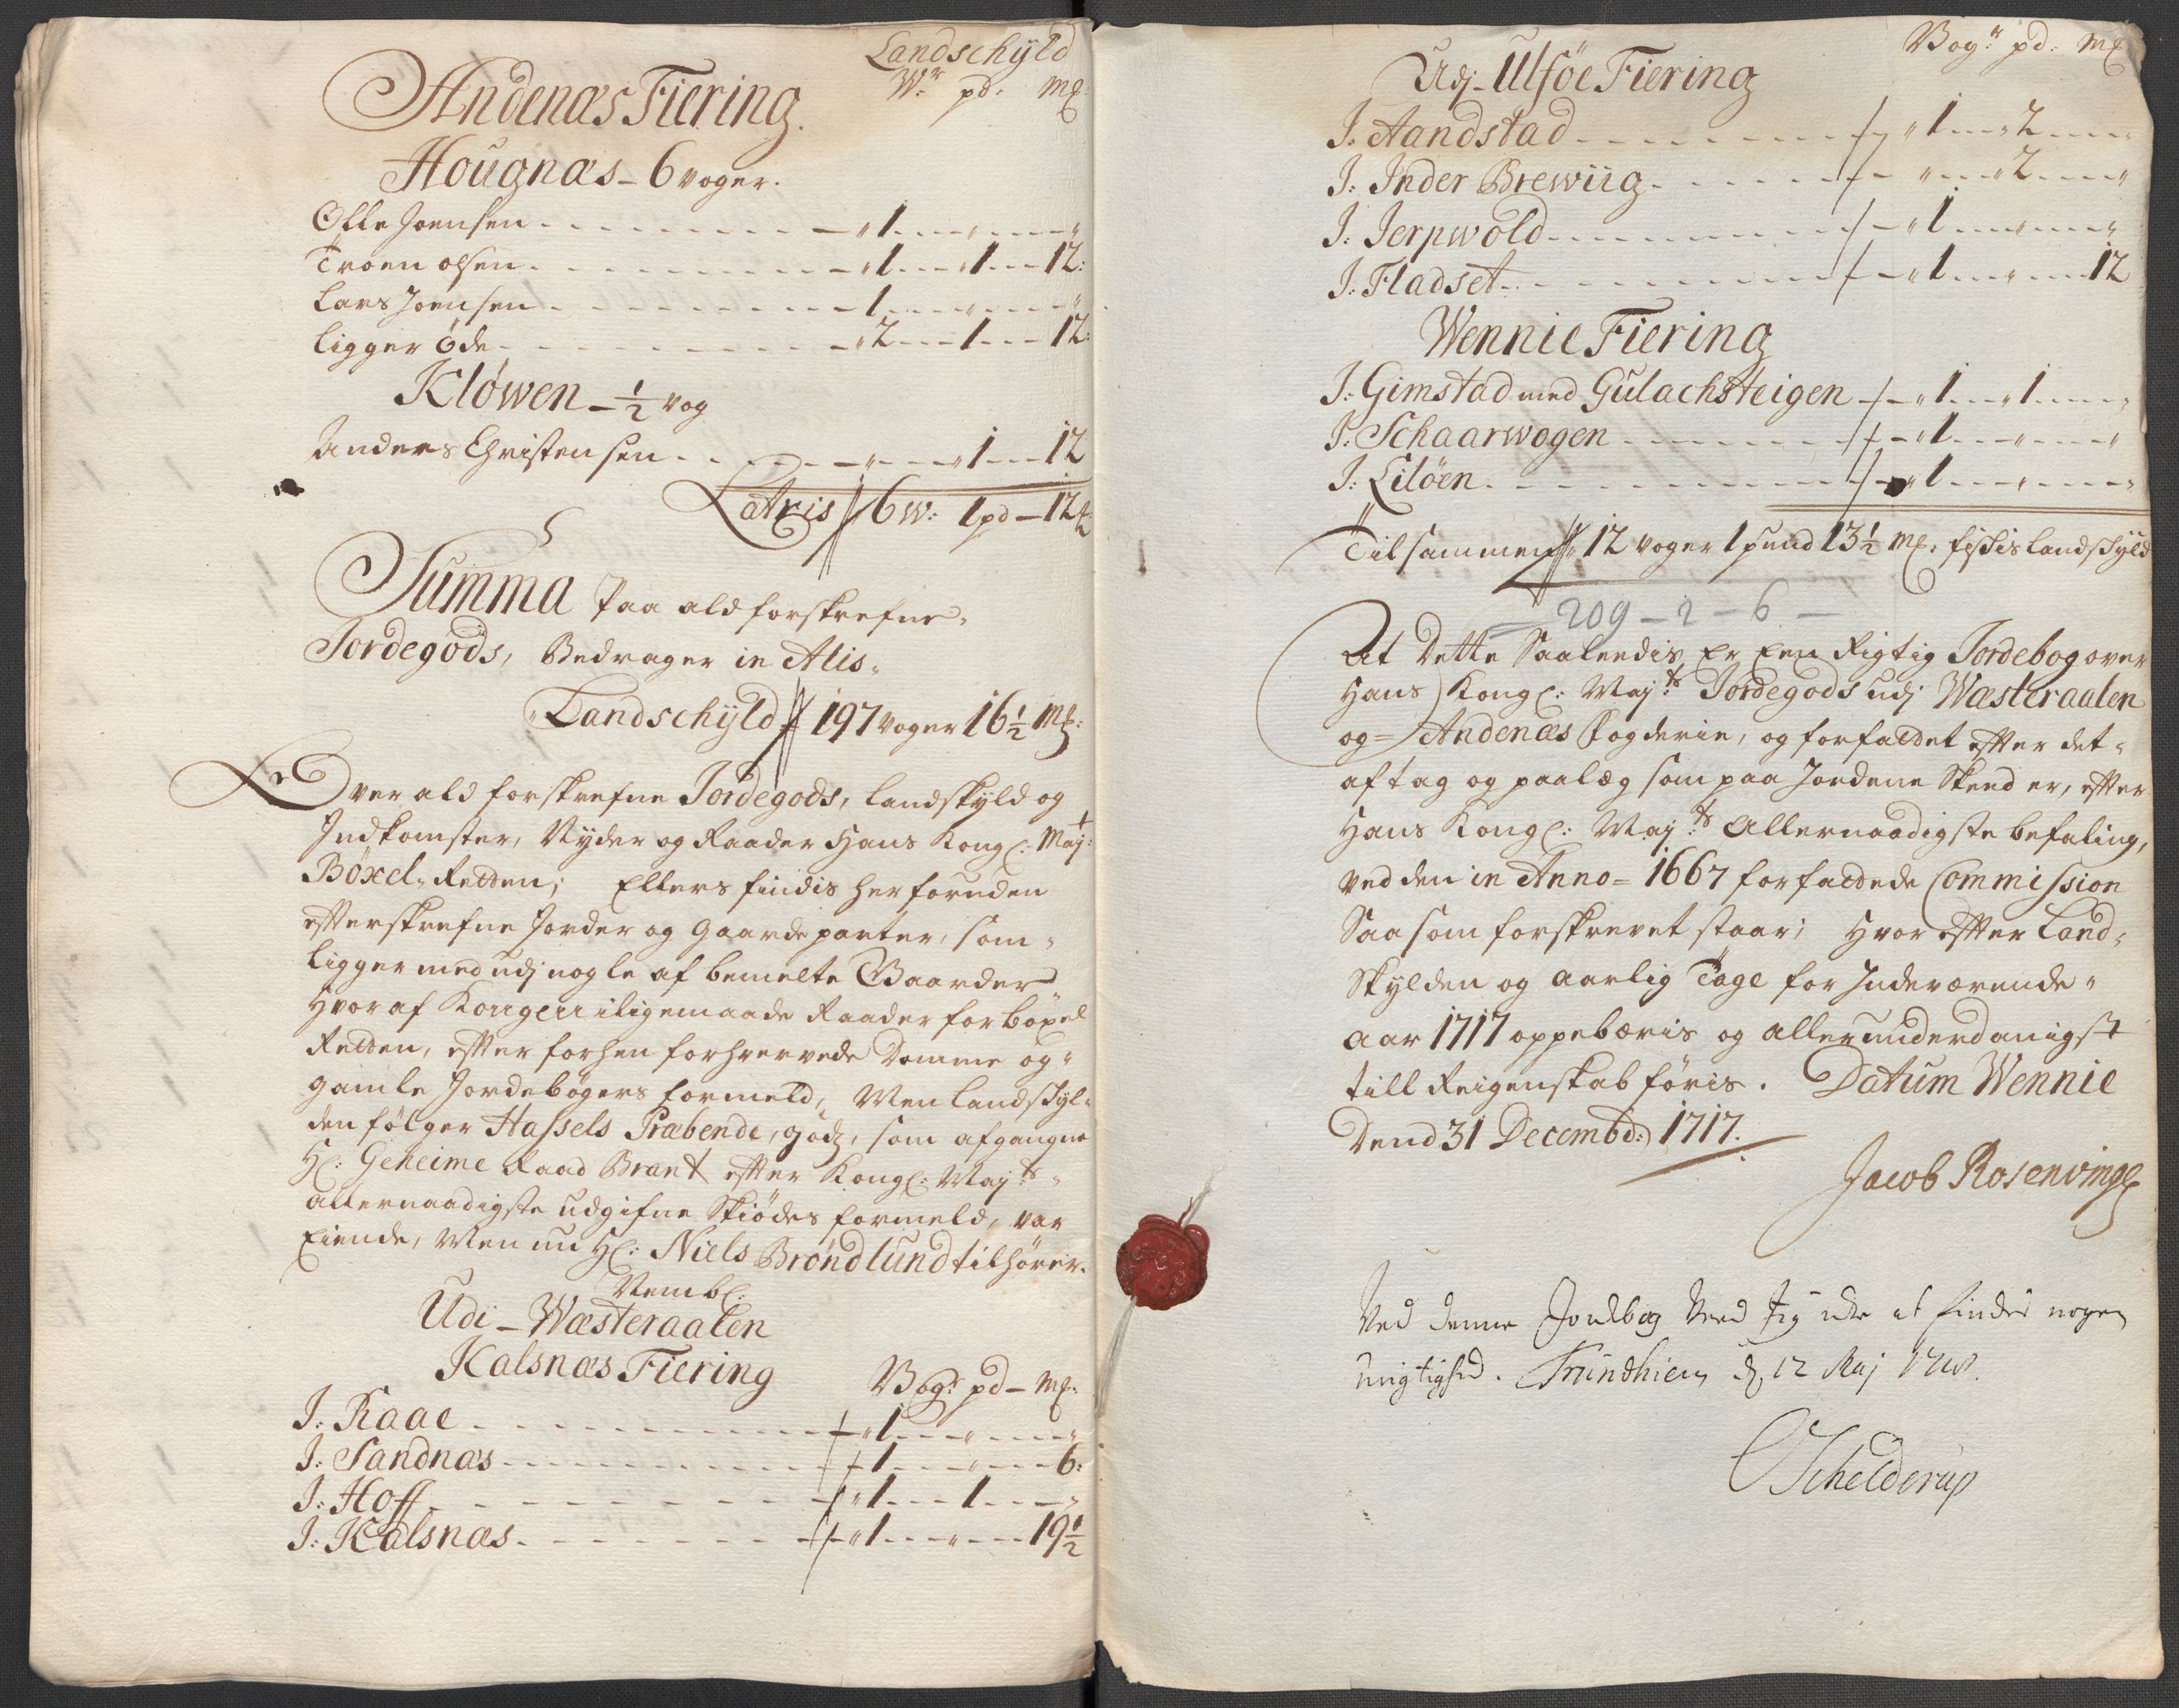 Landschÿld
Wr. pd. Mk:
Andenæs Fiering.
Hougnæs - 6 woger.
Olle Joensen - " 1 - " - "
Troen olsen - " 1 - " 1 - 12:
Lars Joensen - 1 - " - "
ligger öde - " 2 - 1 - 12:
Klöwen - 1/2 wog
Anders Christensen - " - " 1 - 12
Latris 6 w: 1 pd - 12
Summa paa ald forskrefne
Jordegods, Bedrager in Alis
Landschÿld 197 woger 16 1/2 Mk:
Over ald forskrefne Jordegods, landskyld og
Indkomster, Nyder og Raader Hans Kongl: Mayt:
Böxel-Retten; Ellers findis her foruden
efterskrefne Jorder og Gaardeparter, som
ligger med udj nogle af bemelte Gaarder
Hvoraf Kongen iligemaade Raader for böxel
Retten, efter forhen forhvervede Domme og
gamle Jordebögers formeld, Men landskyl-
den fölger Hassels Præbende, godz, som afgangne
Hl: Geheime Raad Brant efter Kongl: Mayts
allernaadigste udgifne Skiödes formeld, var
Eiende, Men nu Hl: Niels Bröndlund tilhörer.
Nembl:
Udi - Wæsteraalen
Kalsnæs Fiering
Vogr pd - Mk:
J: Raae - " 1 - " - "
J: Sandnæs - 1 - " - 6:
J: Hoff - " 1 - 1 - "
J: Kalsnæs - " 1 - " - 19 1/2
Vogr: pd: Mk
Udj - Ulföe Fiering
J. Aandstad - " 1 - " 2 - "
J: Inder Brewiig - " - " 2 - "
J: Jerpwold - " 1 - " - "
J: Fladset - " 1 - " - 12
Wennie Fiering
J: Gimstad med Gulachsteigen - " 1 - " 1 - "
J: Schaarwogen - " 1 - " - "
J: Lilöen - " 1 - " - "
Tilsammen 12 woger 1 pund 13 1/2 Mk. fiskis landskÿld
209 - 2 - 6 -
At Dette Saaleedis Er Een Rigtig Jordebog over
Hans Kongl: Mayts Jordegods udj Wæsteraalen
og = Andenæs Fogderie, og forfattet efter det
aftag og paalæg som paa Jordene Skeed er, efter
Hans Kongl: Mayts Allernaadigste befaling,
ved den in Anno = 1667 forfattede Commission
Saasom forskrevet staar; Hvor efter Land-
Skylden og Aarlig Tage for Indeværende
Aar 1717 oppebæris og allerunderdanigst
till Reigenskab föris. Datum Wennie
Dend 31 Decembd: 1717.
Jacob Rosenvinge
Ved denne Jordbog Veed Jeg icke at findes nogen
urigtighed. Trundhiem d. 12 Maj 1718.
Schelderup